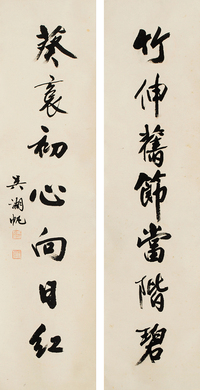 竹伸舊節當階碧
葵裏初心向日紅
吳湖帆